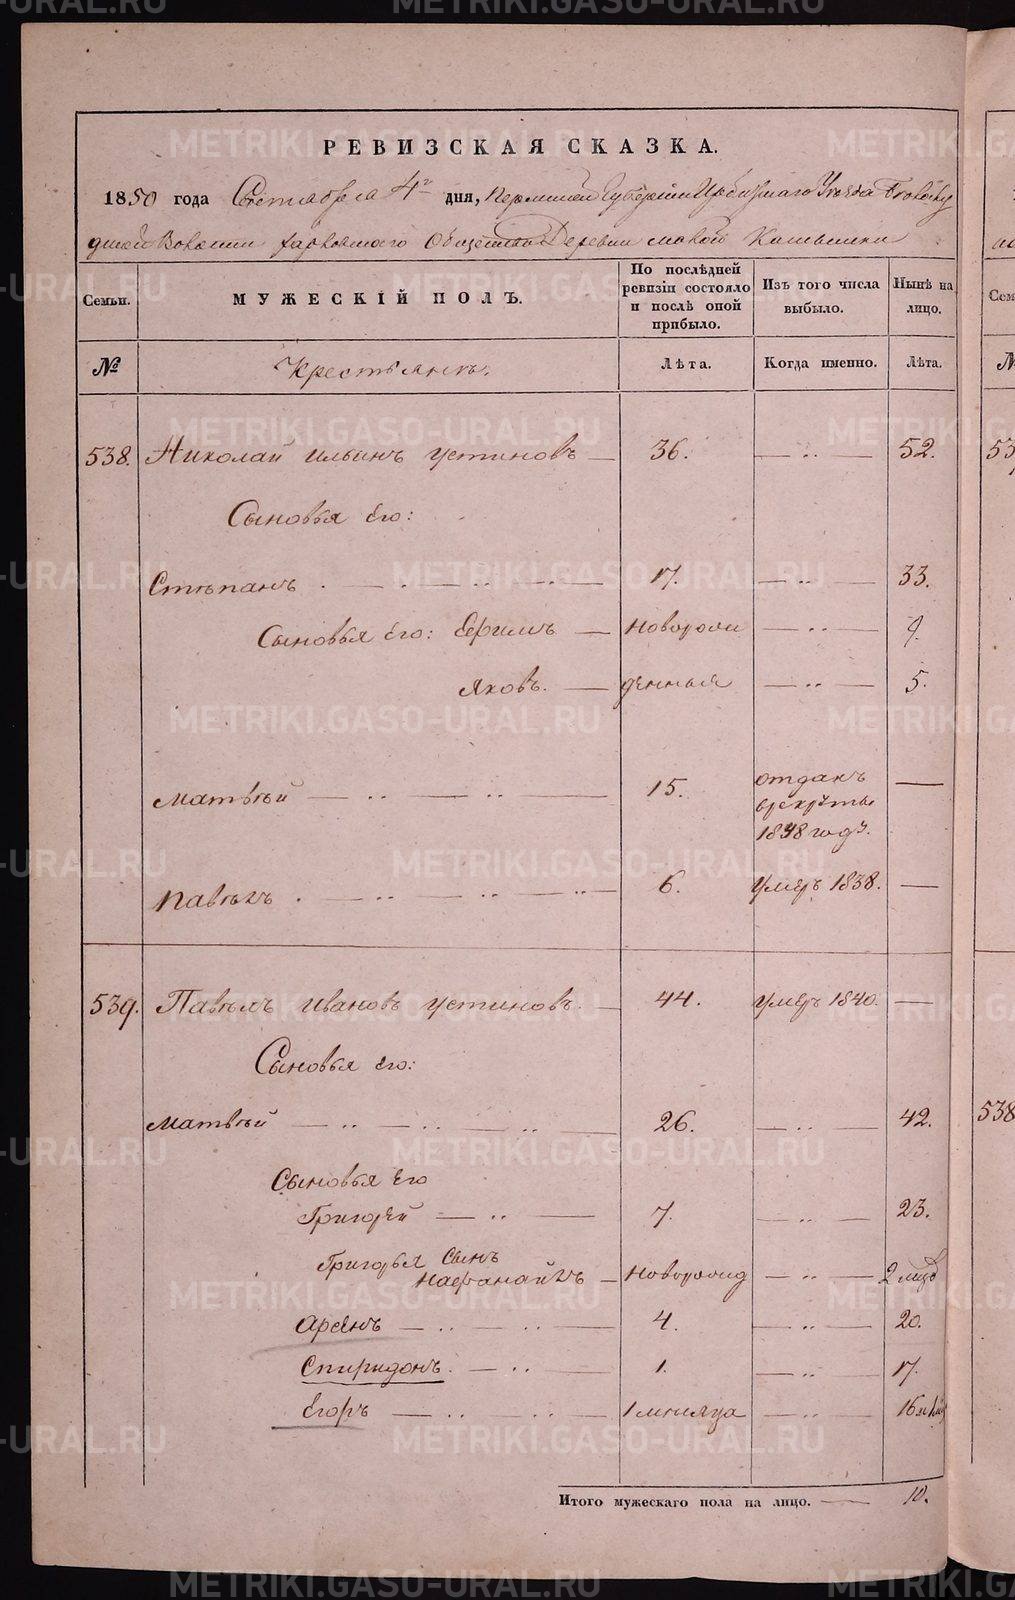 РЕВИЗСКАЯ СКАЗКА.
1850 года Сентября 4го дня, Пермской Губернии Ирбитского Уезда
Волости Общества Деревни
Семьи.
МУЖЕСКІЙ ПОЛЪ.
По послѣдней ревизіи состояло и послѣ оной прибыло.
Изъ того числа выбыло.
Нынѣ на лицо.
№
Крестьянъ.
Лѣта.
Когда именно.
Лѣта.
538. Николай Ильинъ Устиновъ — 36. — „ — 52.
Сыновья Его:
Степанъ . — „ — „ — „ — 17. — „ — 33.
Сыновья Его: Ефимъ — Новорож — „ — 9.
Яковъ. — денныя — „ — 5.
Матвѣй — „ — „ — 15. отданъ
врекруты
1848 году. —
Павелъ . — „ — „ — „ — 6. Умеръ 1838. —
539. Павелъ Ивановъ Устиновъ. — 44. Умеръ 1840. —
Сыновья Его:
Матвѣй — „ — „ — „ — 26. — „ — 42.
Сыновья Его
Григорей — „ — 7. — „ — 23.
Григорья Сынъ
Нафанаилъ — Новорожд — „ — 2 мцъ
Арсенъ — „ — „ — 4. — „ — 20.
Спиридонъ. — „ — 1. — „ — 17.
Егоръ — „ — „ — 1 мѣсяца — „ — 16
Итого мужескаго пола на лицо. — 10.
53
538
METRIKI.GASO-URAL.RU